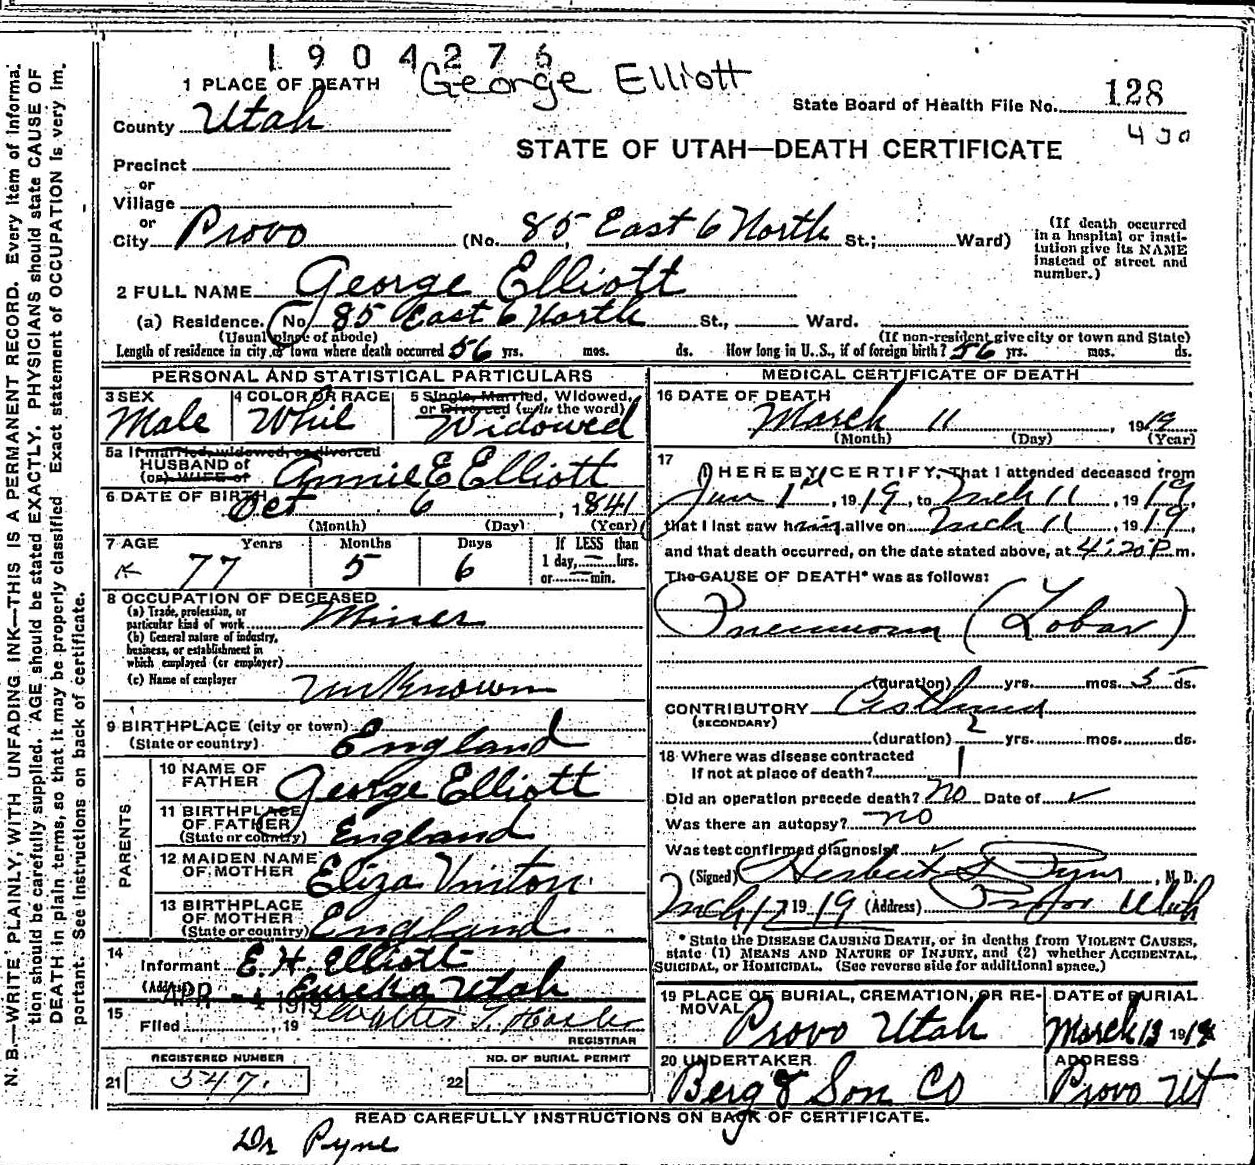 1904276
George Elliott
1 PLACE OF DEATH
State Board of Health File No. 128
County Utah
430
STATE OF UTAH—DEATH CERTIFICATE
Precinct
or
Village
or
City Provo (No. 85 East 6 North St.; Ward)
(If death occurred in a hospital or insti-
tution give its NAME
instead of street and
number.)
2 FULL NAME George Elliott
(a) Residence. No. 85 East 6 North St., Ward.
(Usual place of abode) (If non-resident give city or town and State)
Length of residence in city or town where death occurred 56 yrs. mos. ds. How long in U. S., if of foreign birth? 56 yrs. mos. ds.
PERSONAL AND STATISTICAL PARTICULARS
3 SEX 4 COLOR OR RACE 5 Single, Married, Widowed,
or Divorced (write the word)
Male Whit Widowed
5a If married, widowed, or divorced
HUSBAND of
(or) WIFE of Annie E Elliott
6 DATE OF BIRTH Oct 6, 1841
(Month) (Day) (Year)
7 AGE Years Months Days If LESS than
1 day, hrs.
or min.
77 5 6
8 OCCUPATION OF DECEASED
(a) Trade, profession, or
particular kind of work Miner
(b) General nature of industry,
business, or establishment in
which employed (or employer)
(c) Name of employer Unknown
9 BIRTHPLACE (city or town)
(State or country) England
PARENTS
10 NAME OF
FATHER George Elliott
11 BIRTHPLACE
OF FATHER
(State or country) England
12 MAIDEN NAME
OF MOTHER Eliza Vinton
13 BIRTHPLACE
OF MOTHER
(State or country) England
14
Informant E. H. Elliott
(Address) Eureka Utah
APR -4 1919
15
Filed , 19 Walter T. Hasler
REGISTRAR
REGISTERED NUMBER NO. OF BURIAL PERMIT
21 347. 22
MEDICAL CERTIFICATE OF DEATH
16 DATE OF DEATH
March 11, 1919
(Month) (Day) (Year)
17
I HEREBY CERTIFY, That I attended deceased from
Jan 1st, 1919, to Mch 11, 1919,
that I last saw him alive on Mch 11, 1919,
and that death occurred, on the date stated above, at 4:20 P. m.
The CAUSE OF DEATH* was as follows:
Pneumonia (Lobar)
(duration) yrs. mos. 5 ds.
CONTRIBUTORY Asthma
(SECONDARY)
(duration) 2 yrs. mos. ds.
18 Where was disease contracted
If not at place of death?
Did an operation precede death? No Date of ✓
Was there an autopsy? no
Was test confirmed diagnosis? ✓
(Signed) Herbert S Pyne, M. D.
Mch 12 1919 (Address) Provo Utah
* State the DISEASE CAUSING DEATH, or in deaths from VIOLENT CAUSES,
state (1) MEANS AND NATURE OF INJURY, and (2) whether ACCIDENTAL,
SUICIDAL, or HOMICIDAL. (See reverse side for additional space.)
19 PLACE OF BURIAL, CREMATION, OR RE-
MOVAL
Provo Utah
DATE of BURIAL
March 13 1919
20 UNDERTAKER
Berg & Son Co
ADDRESS
Provo Ut
READ CAREFULLY INSTRUCTIONS ON BACK OF CERTIFICATE.
Dr Pyne
N. B.—WRITE PLAINLY, WITH UNFADING INK—THIS IS A PERMANENT RECORD. Every item of Informa-
tion should be carefully supplied. AGE should be stated EXACTLY. PHYSICIANS should state CAUSE OF
DEATH in plain terms, so that it may be properly classified. Exact statement of OCCUPATION is very im-
portant. See instructions on back of certificate.